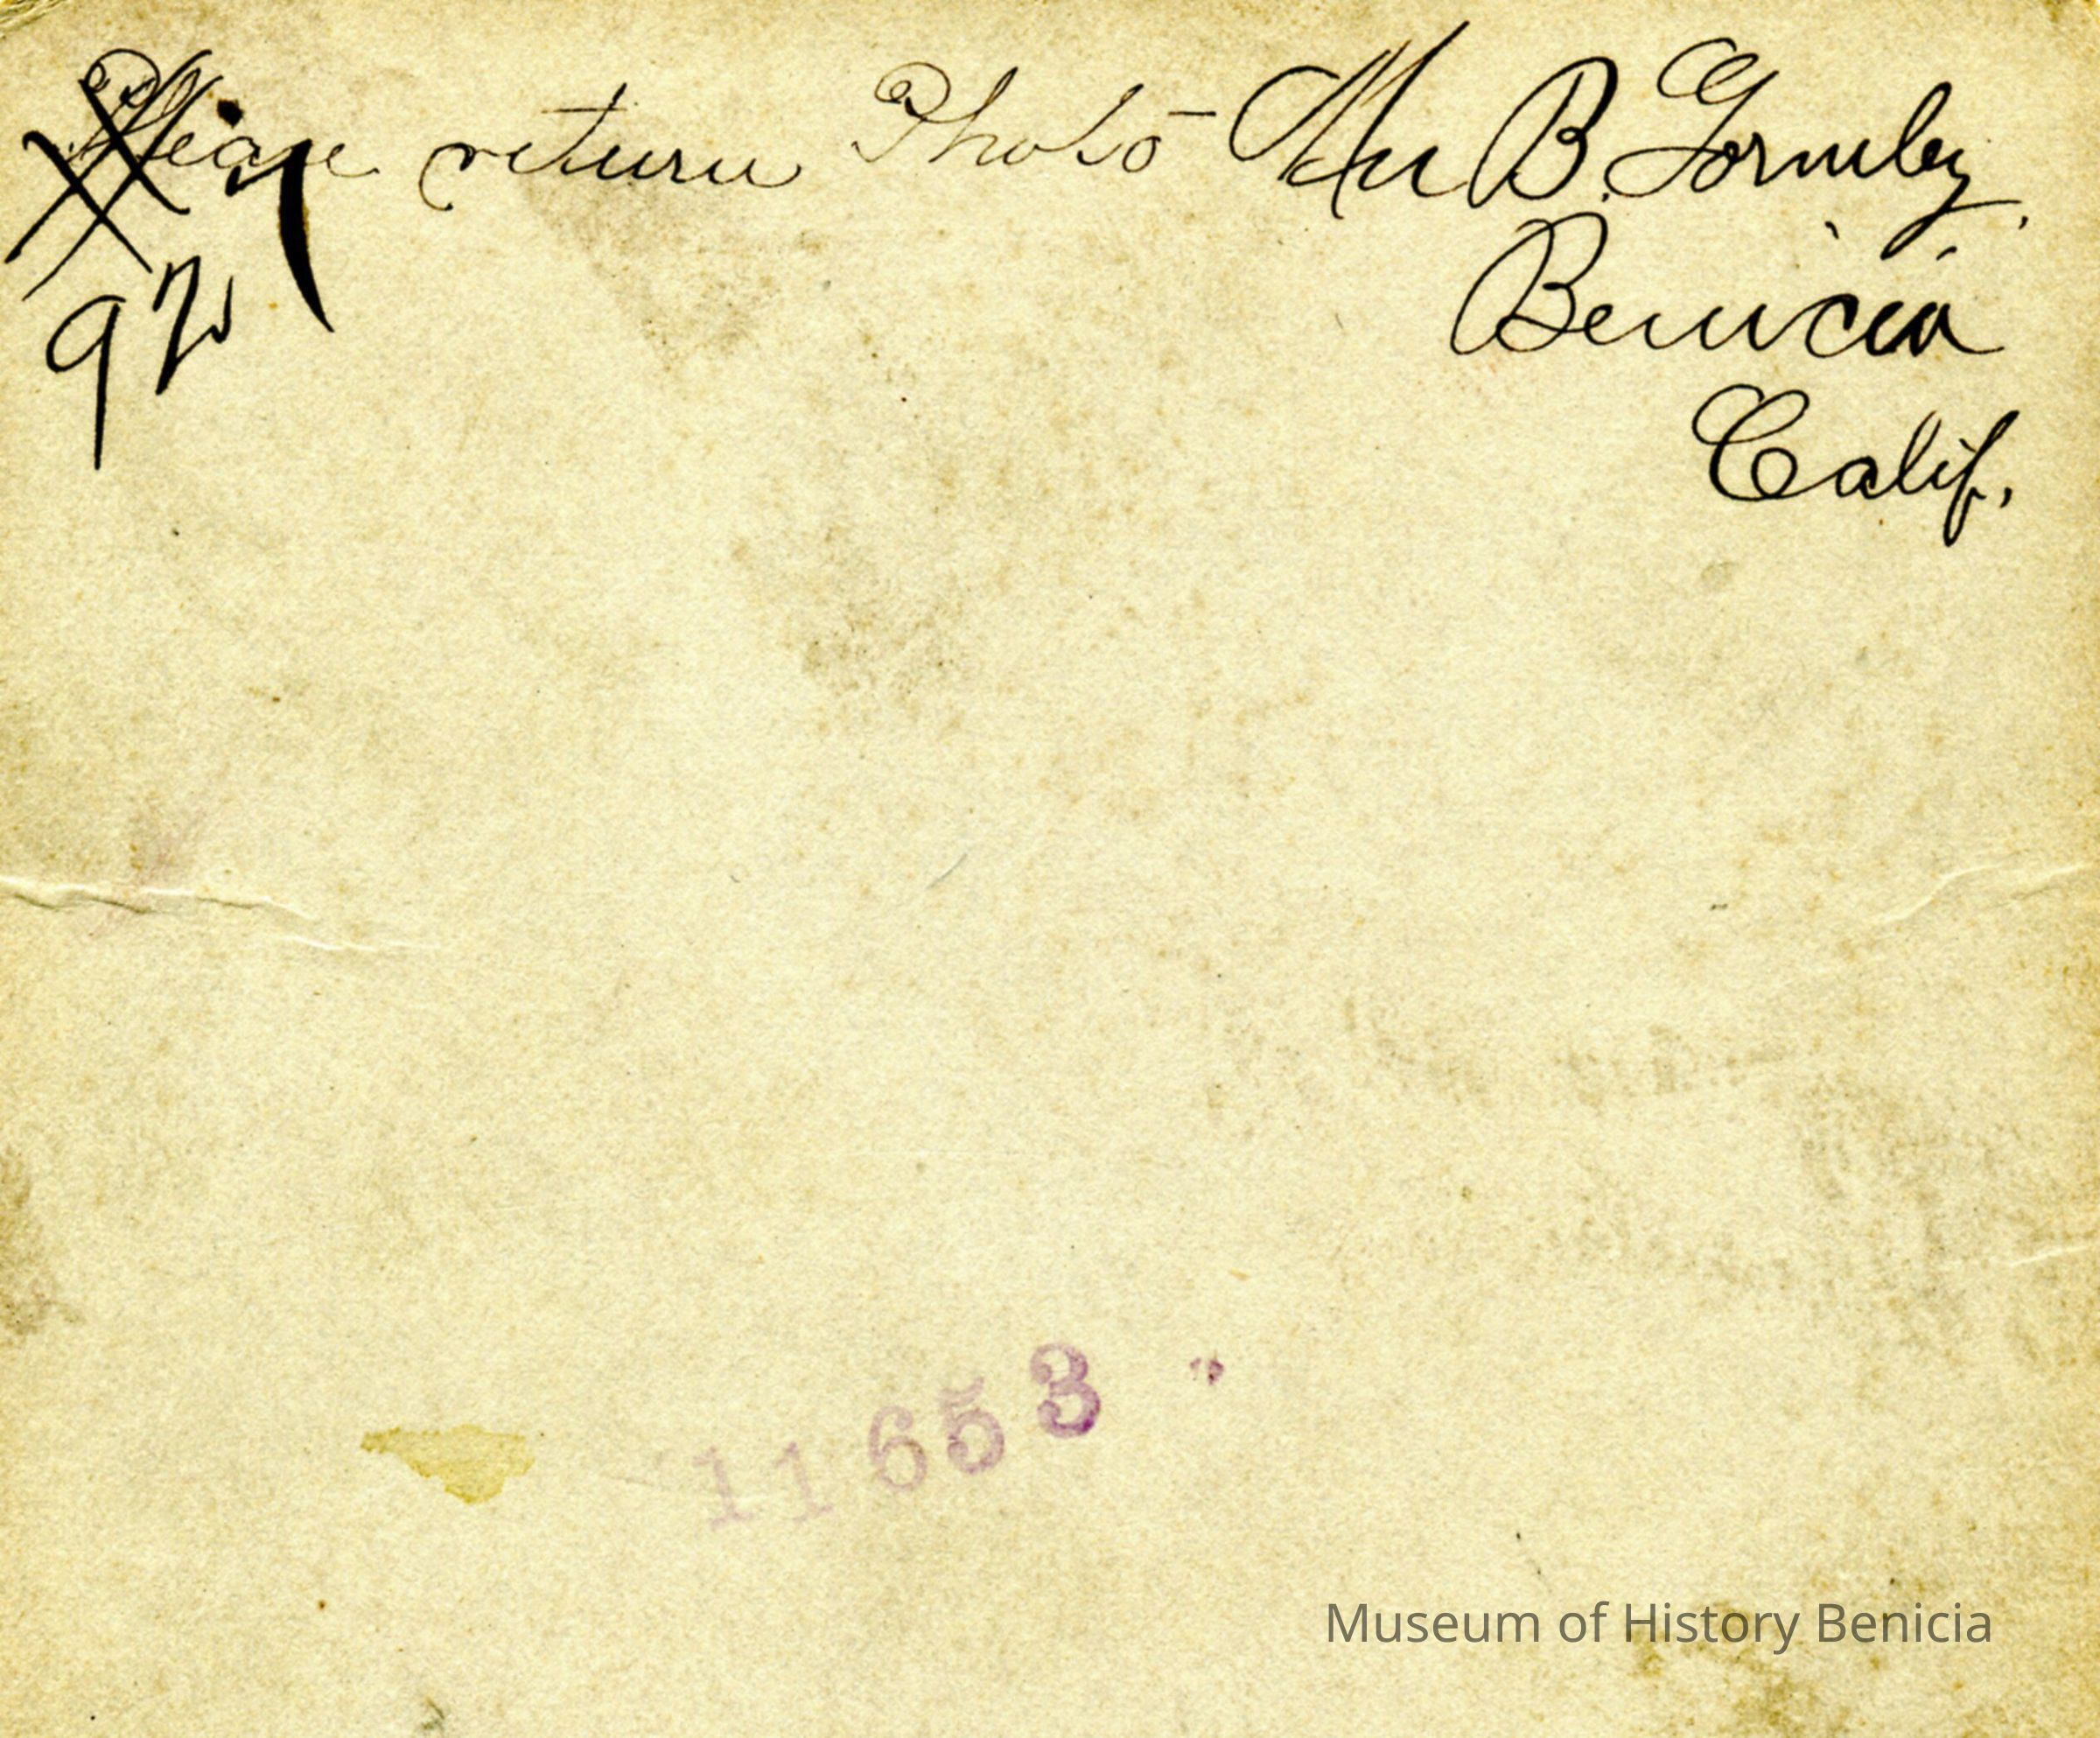 Please return Photo Mr B. Gormley,
Benicia
Calif.
92
11653
Museum of History Benicia